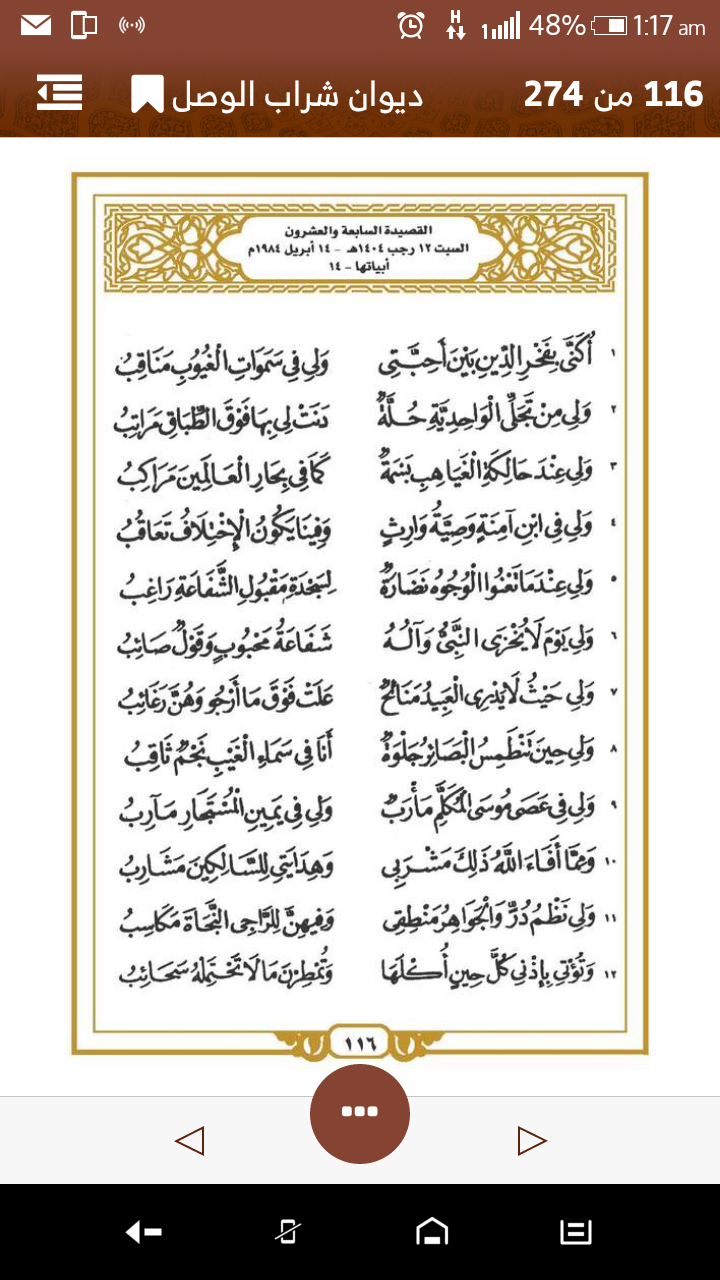 48% 1:17 am
116 من 274 ديوان شراب الوصل
القصيدة السابعة والعشرون
السبت ١٢ رجب ١٤٠٤هـ - ١٤ أبريل ١٩٨٤م
أبياتها - ١٤
١ أُكَنَّى بِفَخْرِ الدِّينِ بَيْنَ أَحِبَّتِي وَلِي فِي سَمَوَاتِ الْغُيُوبِ مَنَاقِبُ
٢ وَلِي مِنْ تَجَلِّي الْوَاحِدِيَّةِ حُلَّةٌ دَنَتْ لِي بِهَا فَوْقَ الطِّبَاقِ مَرَاتِبُ
٣ وَلِي عِنْدَ حَالِكَةِ الْغَيَاهِبِ بَسْمَةٌ كَمَا فِي بِحَارِ الْعَالَمِينَ مَرَاكِبُ
٤ وَلِي فِي ابْنِ آمِنَةٍ وَصِيَّةُ وَارِثٍ وَفِينَا يَكُونُ الْإِخْتِلَافُ تَعَاقُبُ
٥ وَلِي عِنْدَمَا تَعْنُوا الْوُجُوهُ نَضَارَةٌ لِسَجْدَةِ مَقْبُولِ الشَّفَاعَةِ رَاغِبُ
٦ وَلِي يَوْمَ لَا يُخْزَى النَّبِيُّ وَآلُهُ شَفَاعَةُ مَحْبُوبٍ وَقَوْلٌ صَائِبُ
٧ وَلِي حَيْثُ لَا يَدْرِي الْعَبِيدُ مَنَائِحٌ عَلَتْ فَوْقَ مَا أَرْجُو وَهُنَّ رَغَائِبُ
٨ وَلِي حِينَ تَنْطَمِسُ الْبَصَائِرُ جَلْوَةٌ أَنَا فِي سَمَاءِ الْغَيْبِ نَجْمٌ ثَاقِبُ
٩ وَلِي فِي عَصَى مُوسَى الْمُكَلَّمِ مَأْرَبٌ وَلِي فِي يَمِينِ الْمُسْتَجَارِ مَآرِبُ
١٠ وَمِمَّا أَفَاءَ اللَّهُ ذَلِكَ مَشْرَبِي وَهِدَايَتِي لِلسَّالِكِينَ مَشَارِبُ
١١ وَلِي نَظْمُ دُرٍّ وَالْجَوَاهِرُ مَنْطِقِي وَفِيهِنَّ لِلرَّاجِي النَّجَاةَ مَكَاسِبُ
١٢ وَتُؤْتِي بِإِذْنِي كُلَّ حِينٍ أُكْلَهَا وَتُمْطِرْنَ مَا لَا تَحْتَمِلْهُ سَحَائِبُ
١١٦